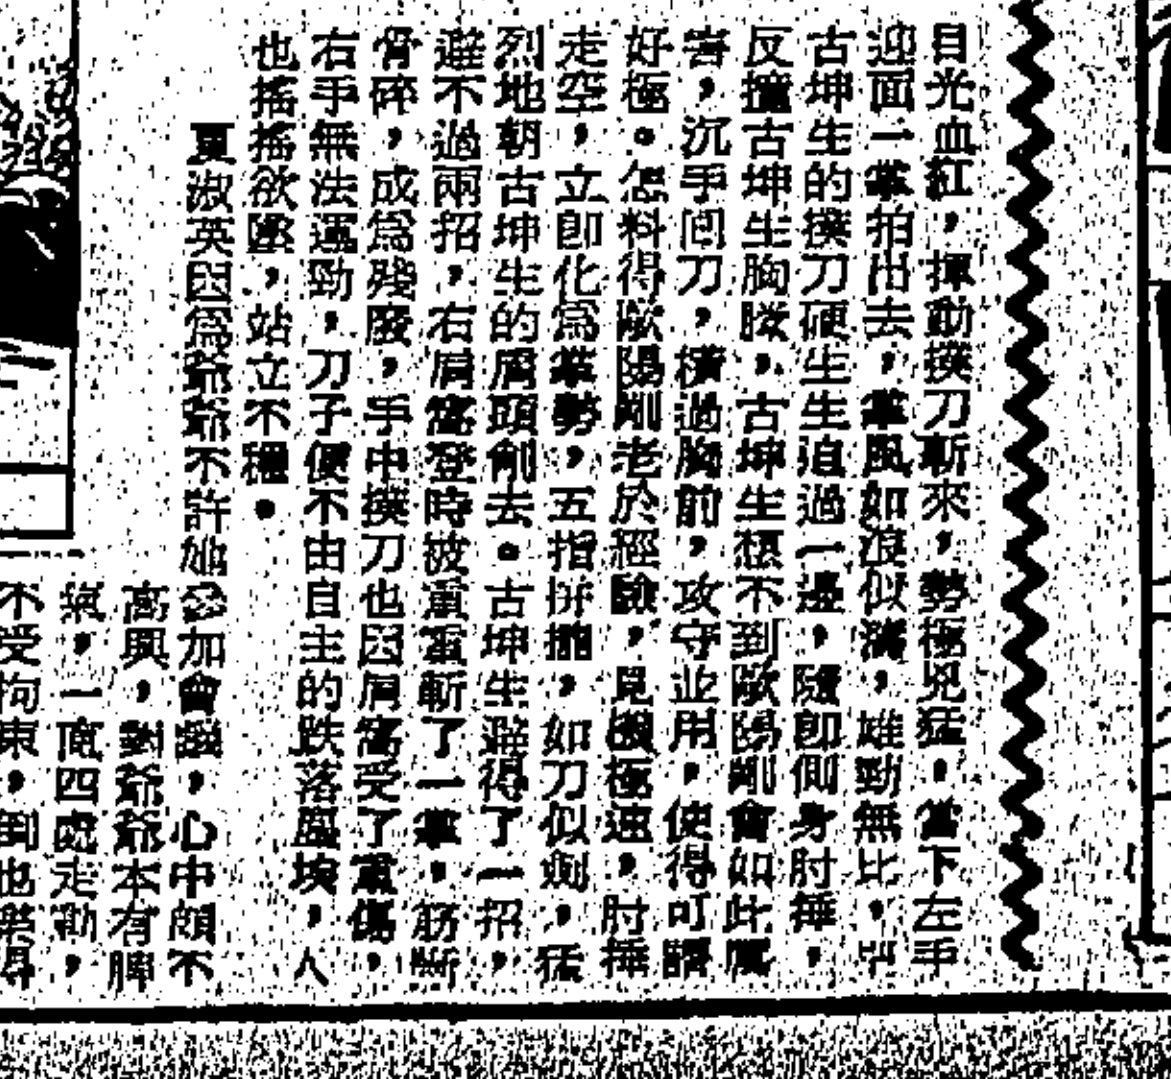 目光血紅，揮動撲刀斬來，勢極兇猛，當下左手
迎面一掌拍出去，掌風如浪似濤，雄勁無比，把
古坤生的撲刀硬生生迫過一邊，隨即側身肘捶，
反撞古坤生胸腹，古坤生想不到歐陽剛會如此厲
害，沉手回刀，橫過胸前，攻守並用，使得可謂
好極。怎料得歐陽剛老於經驗，見機極速，肘捶
走空，立即化為掌勢，五指拼攏，如刀似劍，猛
烈地朝古坤生的肩頭削去。古坤生避得了一招，
避不過兩招，右肩窩登時被重重斬了一掌，筋斷
骨碎，成為殘廢，手中撲刀也因肩窩受了重傷，
右手無法運勁，刀子便不由自主的跌落塵埃，人
也搖搖欲墜，站立不穩。
夏淑英因為爺爺不許她參加會議，心中頗不
高興，對爺爺本有脾
氣，一直四處走動，
不受拘束，倒也樂得